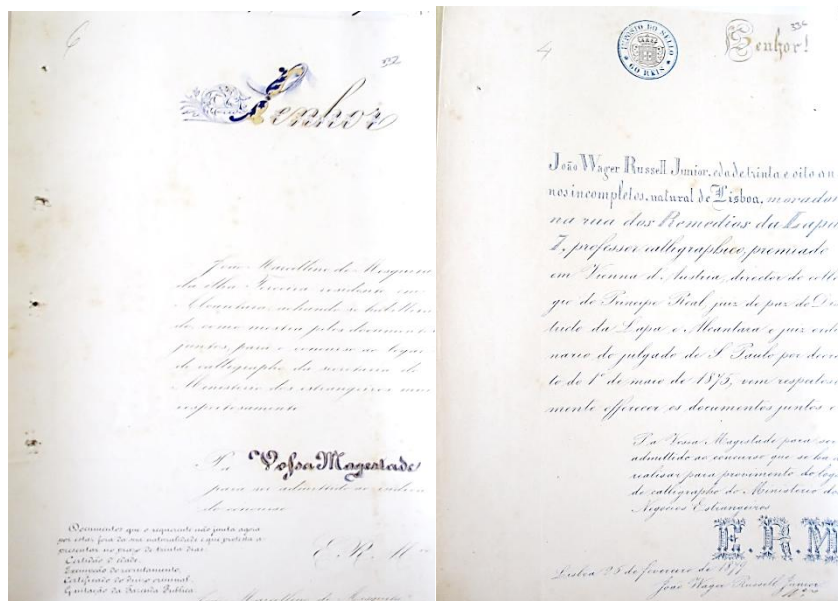 6
332
Senhor
João Marcellino de Mesquita
da Ilha Terceira residente em
Alcantara, achando se habilita
do, como mostra pelos documentos
juntos, para o concurso ao logar
de calligrapho da secretaria do
Ministerio dos estrangeiros mui
respeitosamente
P. a Vossa Magestade
para ser admittido ao
do concurso
Documentos que o requerente não junta agora
por estar fora da sua naturalidade e que
presentar no prazo de trinta dias.
Certidão d'edade.
de recrutamento.
Certificado do crimninal.
Quitação da Fazenda Publica.
E. R. M.ce
João Marcellino de Mesquita
4
IMPOSTO DO SELLO
60 RÉIS
Senhor!
João Wager Russell Junior, edade trinta e oito an
nos incompletos, natural de Lisboa, morador
na rua dos Remedios da Lapa
7, professor calligraphico, premiado
em Vienna d'Austria, director do colle
gio do Principe Real juiz de paz do Dis
tricto da Lapa e Alcantara e juiz ordi
nario do julgado de S. Paulo por decre
to do 1º de maio de 1875, vem respeitosa
mente offerecer os documentos juntos e
P. a Vossa Magestade para ser
admittido ao concurso que se ha de
realisar para provimento do logar
de calligrapho do Ministerio dos
Negocios Estrangeiros
E.R.M
Lisboa 25 de fevereiro de 1879
João Wager Russell Junior